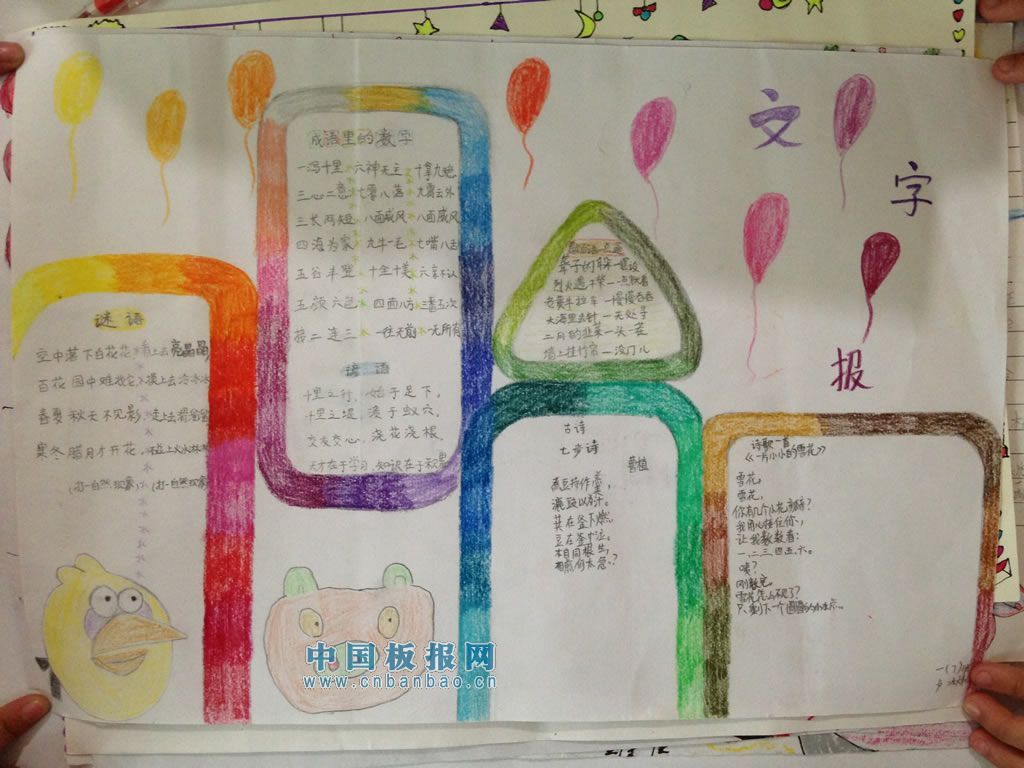 文字报
谜语
空中落下白花花 看上去亮晶晶
百花园中难找它 摸上去冷冰冰
春夏秋天不见影 走上去滑
寒冬腊月才开花
(打一自然现象) (打一自然现象)
成语里的数字
一泻千里 六神无主 十拿九
三心二意 七零八落 九霄云外
三长两短 八面威风 八面威风
四海为家 九牛一毛 七嘴八舌
五谷丰登 十全十美 六亲不认
五颜六色 四面八方 三番五次
接二连三 一往无前 一无所有
谚语
千里之行,始于足下。
千里之堤,溃于蚁穴。
交友交心,浇花浇根。
天才在于学习,知识在于积累
歇后语
聋子的耳朵一摆设
烈火遇干柴一一点就着
老黄牛拉车一慢慢吞吞
大海里捞针一无处寻
二月的韭菜一头一茬
墙上挂竹帘一没门儿
古诗
七步诗
曹植
煮豆持作羹,
漉豉以为汁。
萁在釜下燃,
豆在釜中泣。
本自同根生,
相煎何太急?
诗歌一首
《一片小小的雪花》
雪花,
雪花,
你有几个小花瓣?
我用心接住你,
让我数数看:
一、二、三、四、五、六。
咦?
刚数完,
雪花怎么不见了?
只剩下一个圆圆的小水点…
中国板报网
www.cnbanbao.cn